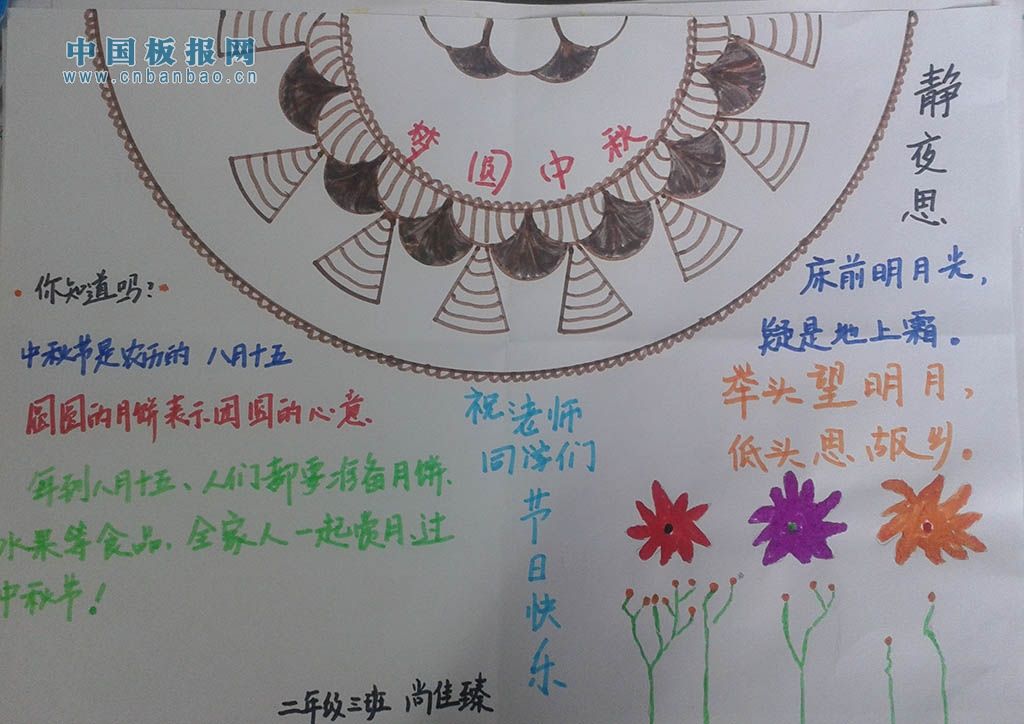 中国板报网
www.cnbanbao.cn
梦圆中秋
静夜思
床前明月光，
疑是地上霜。
举头望明月，
低头思故乡。
•你知道吗？•
中秋节是农历的 八月十五
圆圆的月饼表示团圆的心意
每到八月十五、人们都要准备月饼、
水果等食品、全家人一起赏月、过
中秋节！
祝老师
同学们
节日快乐
二年级三班 尚佳臻